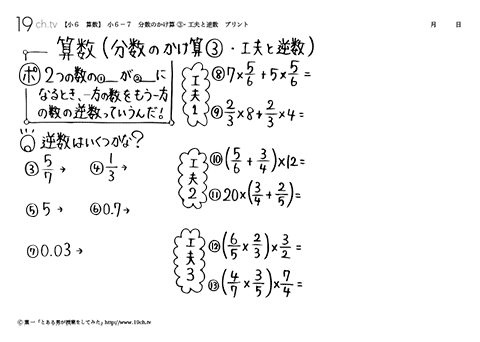 19ch.tv 【小6 算数】 小6-7 分数のかけ算③・工夫と逆数 プリント 月 日
算数(分数のかけ算③・工夫と逆数)
ポ 2つの数の①__が②__に
なるとき、一方の数をもう一方
の数の逆数っていうんだ!
逆数はいくつかな?
③ 5/7 →
④ 1/3 →
⑤ 5 →
⑥ 0.7 →
⑦ 0.03 →
工夫1
⑧ 7×5/6+5×5/6=
⑨ 2/3×8+2/3×4=
工夫2
⑩ (5/6+3/4)×12=
⑪ 20×(3/4+2/5)=
工夫3
⑫ (6/5×2/3)×3/2=
⑬ (4/7×3/5)×7/4=
© 葉一「とある男が授業をしてみた」http://www.19ch.tv